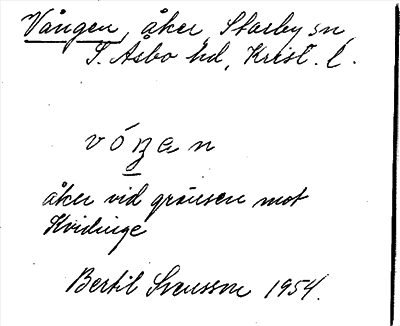 Vången, åker, Starby sn,
S. Åsbo hd, Krist. l.
vóŋən
åker vid gränsen mot
Kvidinge
Bertil Svensson 1954.